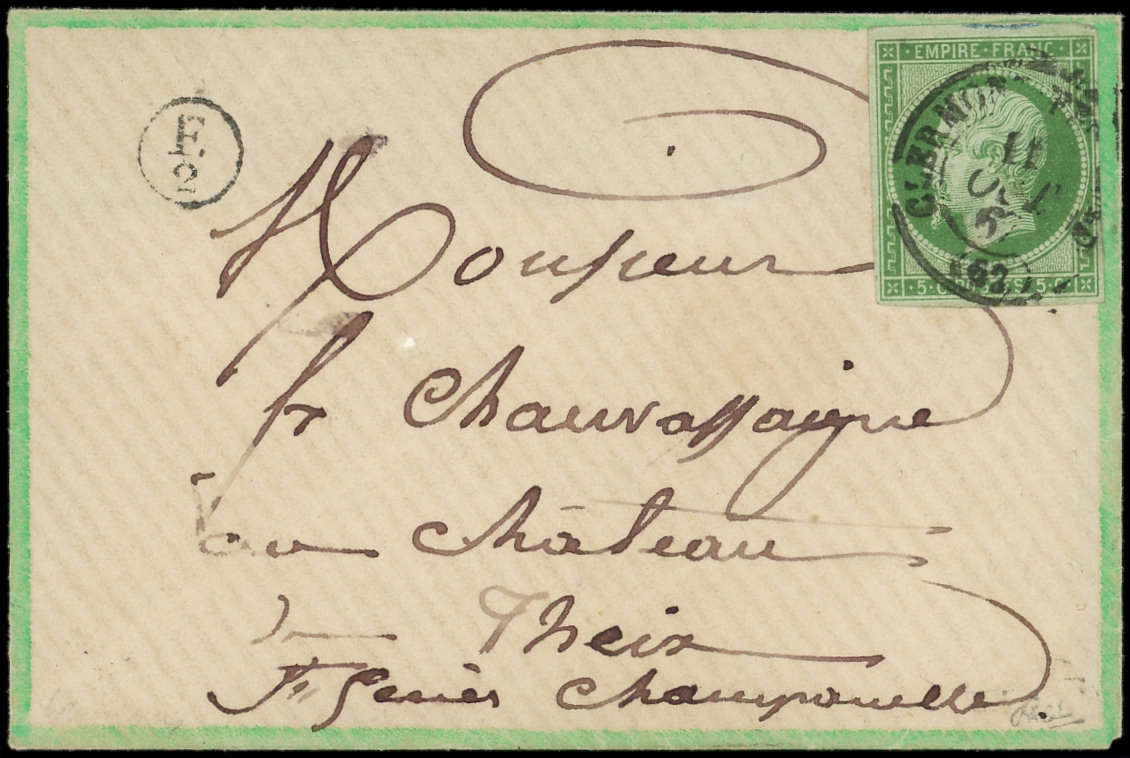 EMPIRE FRANC
CLERMON
11
OCT
(62)
5 C 5 C
F.
2
Monsieur
fr Chauvassaigne
au Château
de Theix
St Genès Champanelle